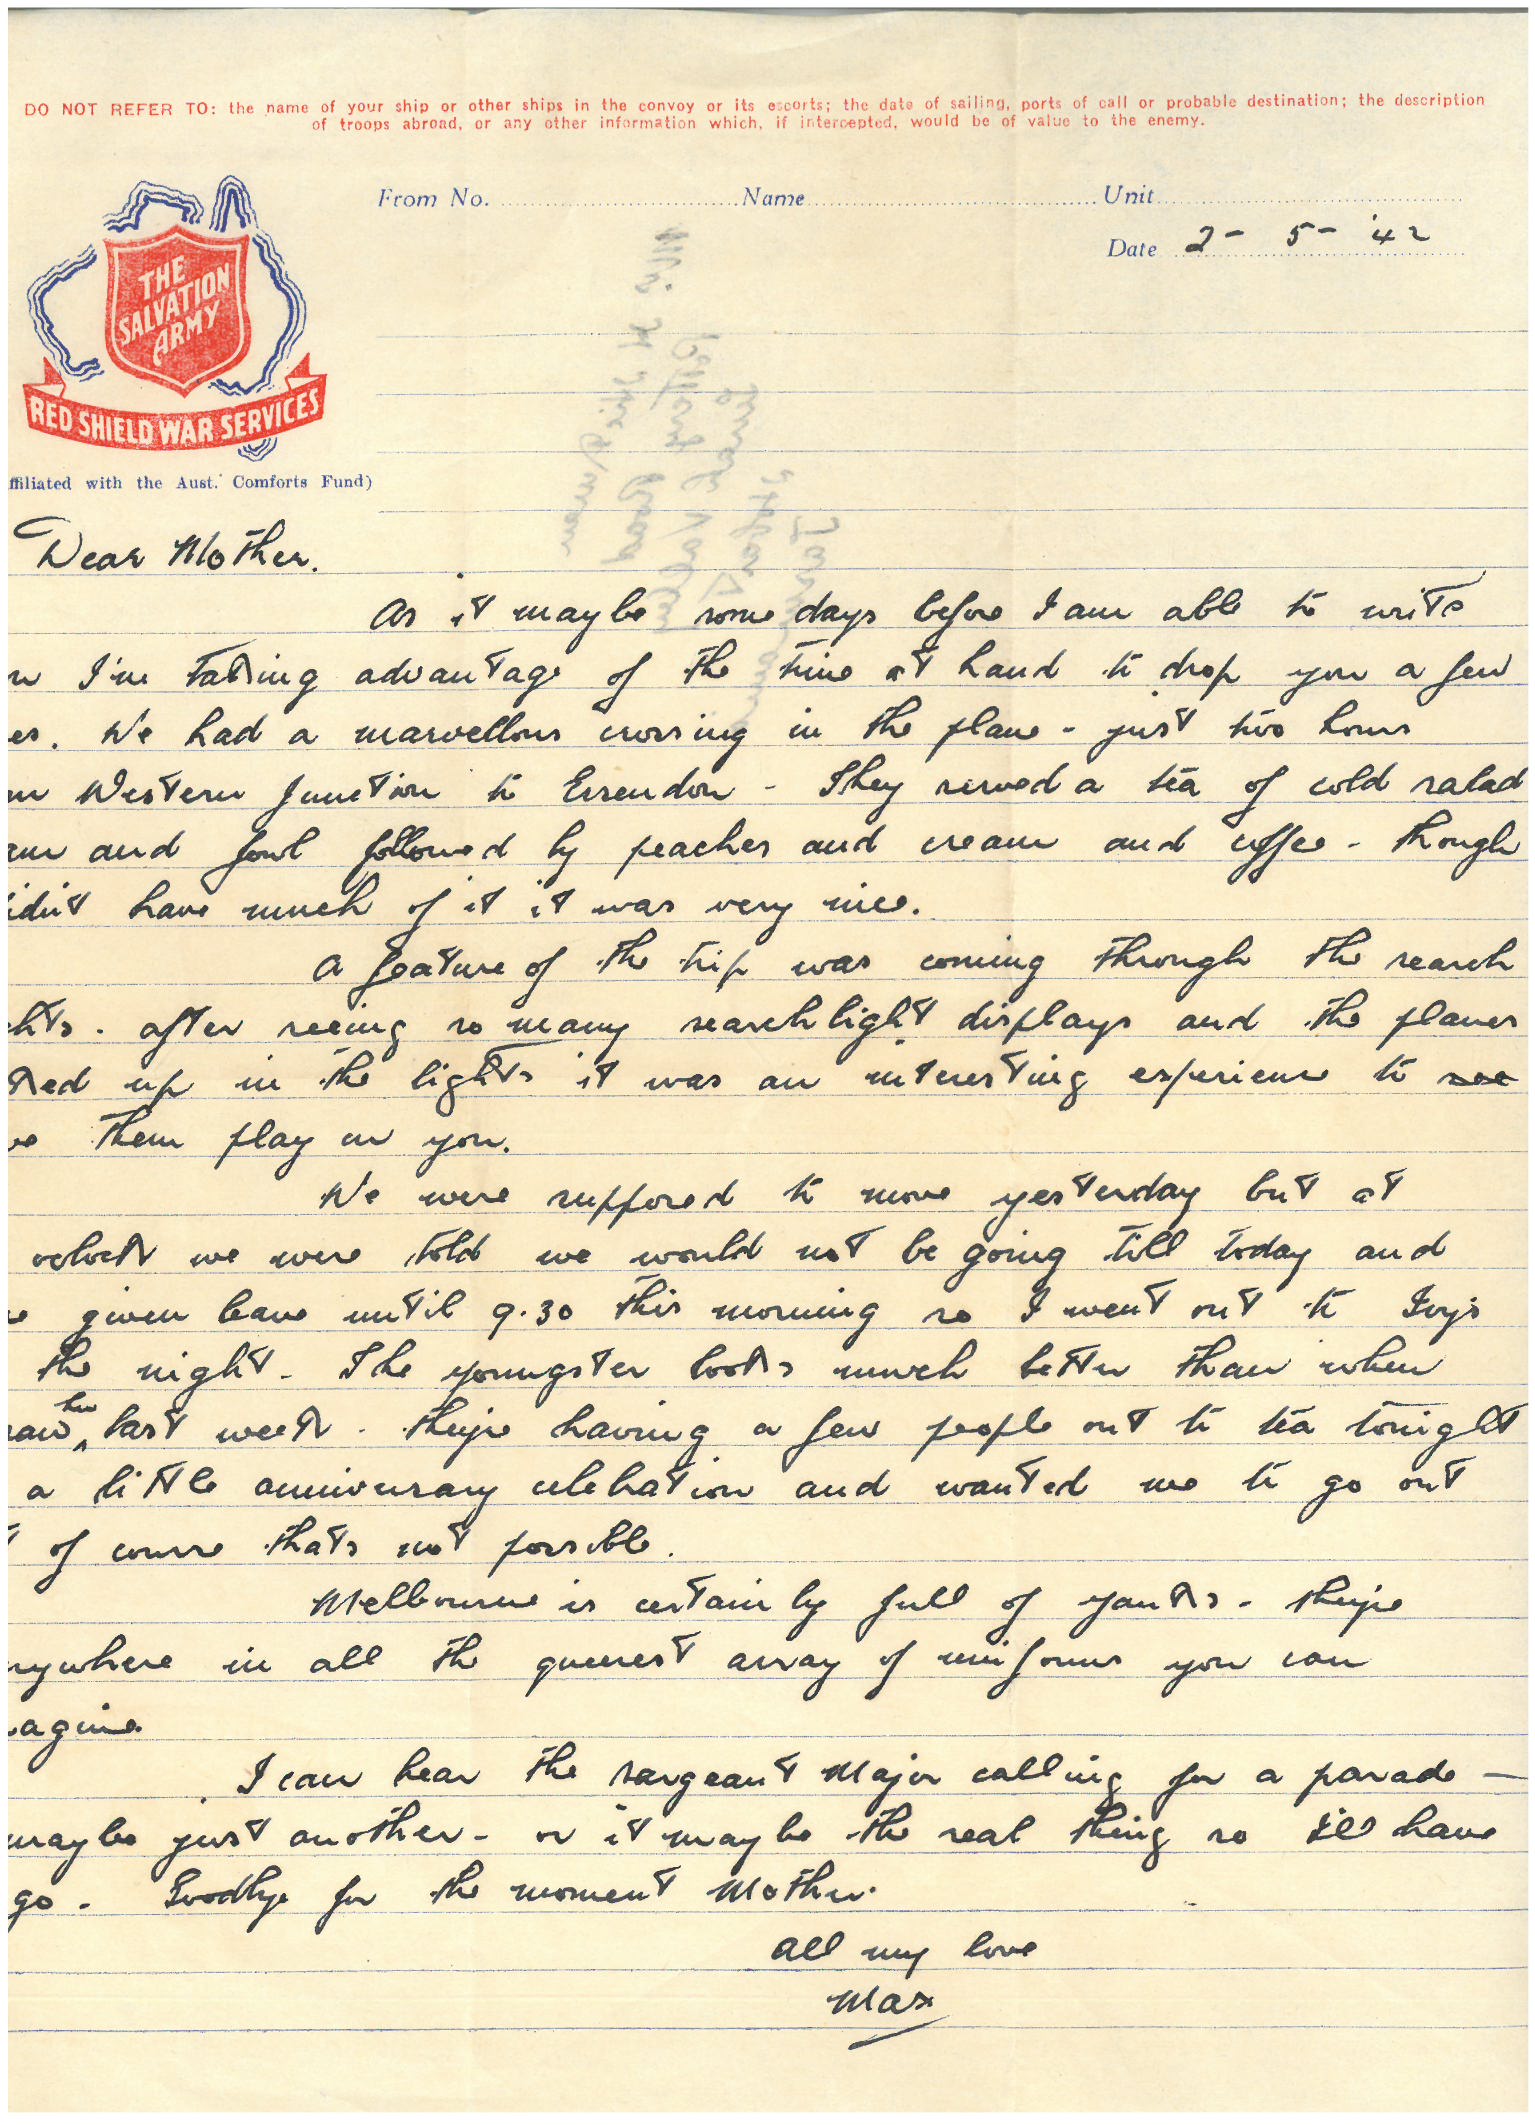 DO NOT REFER TO: the name of your ship or other ships in the convoy or its escorts; the date of sailing, ports of call or probable destination; the description
of troops abroad, or any other information which, if intercepted, would be of value to the enemy.
From No. Name Unit
Date 2 - 5 - '42
THE
SALVATION
ARMY
RED SHIELD WAR SERVICES
ffiliated with the Aust. Comforts Fund)
Dear Mother.
As it maybe some days before I am able to write
n I'm taking advantage of the time at hand to drop you a few
es. We had a marvellous crossing in the plane - just two hours
m Western Junction to Essendon - They served a tea of cold salad
am and fowl followed by peaches and cream and coffee - though
idn't have much of it it was very nice.
A feature of the trip was coming through the search
hts. after seeing so many searchlight displays and the planes
ked up in the lights it was an interesting experience to see
ve them play on you.
We were supposed to move yesterday but at
oclock we were told we would not be going till today and
e given leave until 9.30 this morning so I went out to Ivy's
the night. The youngster looks much better than when
saw her last week. They're having a few people out to tea tonight
a little anniversary celebration and wanted me to go out
t of course thats not possible.
Melbourne is certainly full of yanks - they're
rywhere in all the queerest array of uniforms you can
agine.
I can hear the sargeant Major calling for a parade -
maybe just another - or it maybe the real thing so I'll have
go. Goodbye for the moment Mother.
All my love
Max